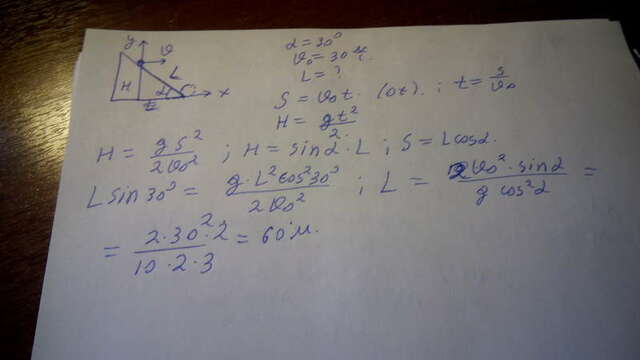 y
v
H
L
α
x
t
α = 30°
v₀ = 30 м/с.
L = ?
S = v₀t. (ox). ; t = S/v₀
H = gt²/2.
H = gS²/2v₀² ; H = sinα · L ; S = L cosα.
L sin 30° = g · L² cos² 30°/2v₀² ; L = 2v₀² · sinα/g cos²α =
= 2 · 30² · 2/10 · 2 · 3 = 60 м.